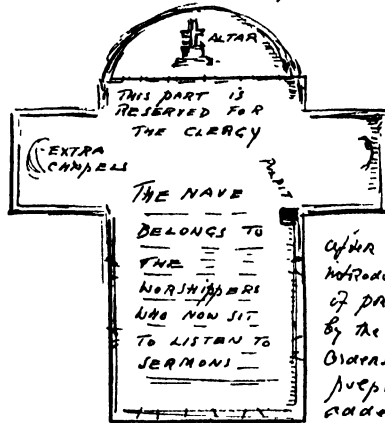 ALTAR
THIS PART IS
RESERVED FOR
THE CLERGY
EXTRA
CHAPELS
PULPIT
THE NAVE
BELONGS TO
THE
WORSHIPPERS
WHO NOW SIT
TO LISTEN TO
SERMONS
after
introdu
of pr
by the
orders
pulpi
adde